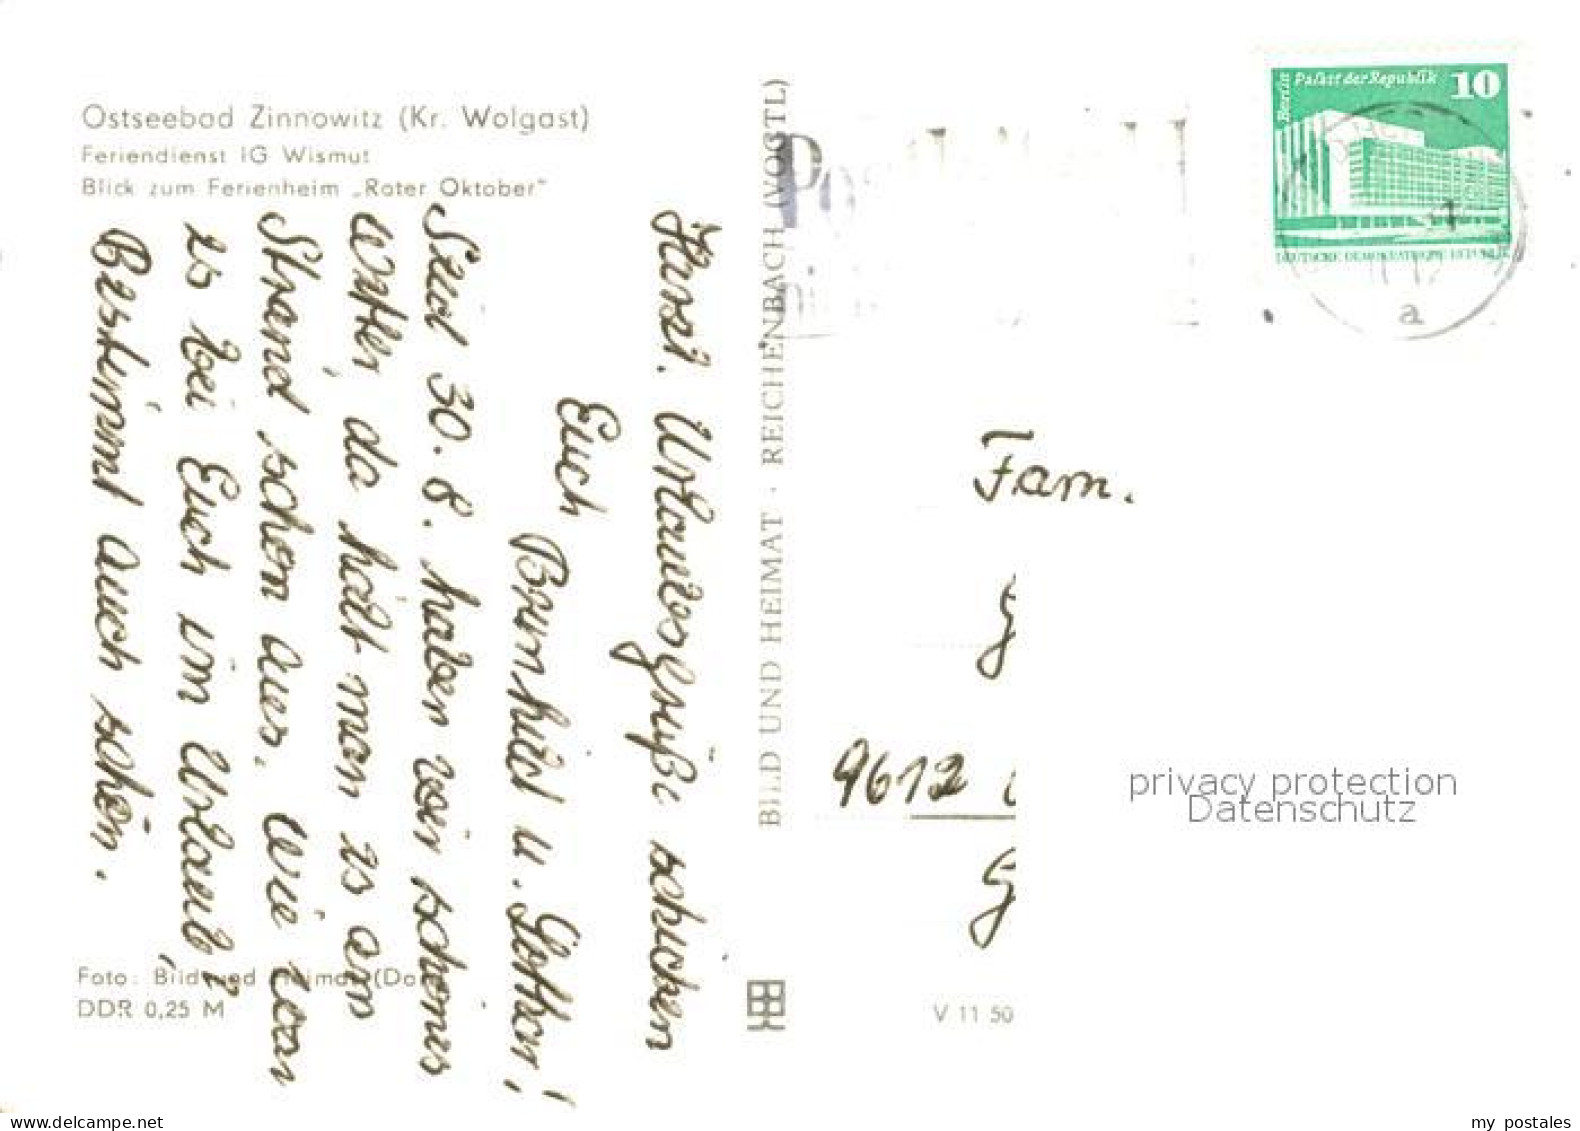 Ostseebad Zinnowitz (Kr. Wolgast)
Feriendienst IG Wismut
Blick zum Ferienheim „Roter Oktober“
Herzl. Urlaubsgrüße schicken
Euch
Brunhild u. Lothar!
Seit 30. 8. haben wir schönes
Wetter, da hält man es am
Strand schon aus. Wie war
es bei Euch im Urlaub?
Bestimmt auch schön.
Foto: Bild und Heimat
DDR 0,25 M
BILD UND HEIMAT · REICHENBACH (VOGTL)
V 11 50
Berlin Palast der Republik 10
DEUTSCHE DEMOKRATISCHE REPUBLIK
a
Fam.
G
9612
G
privacy protection
Datenschutz
www.delcampe.net
my postales